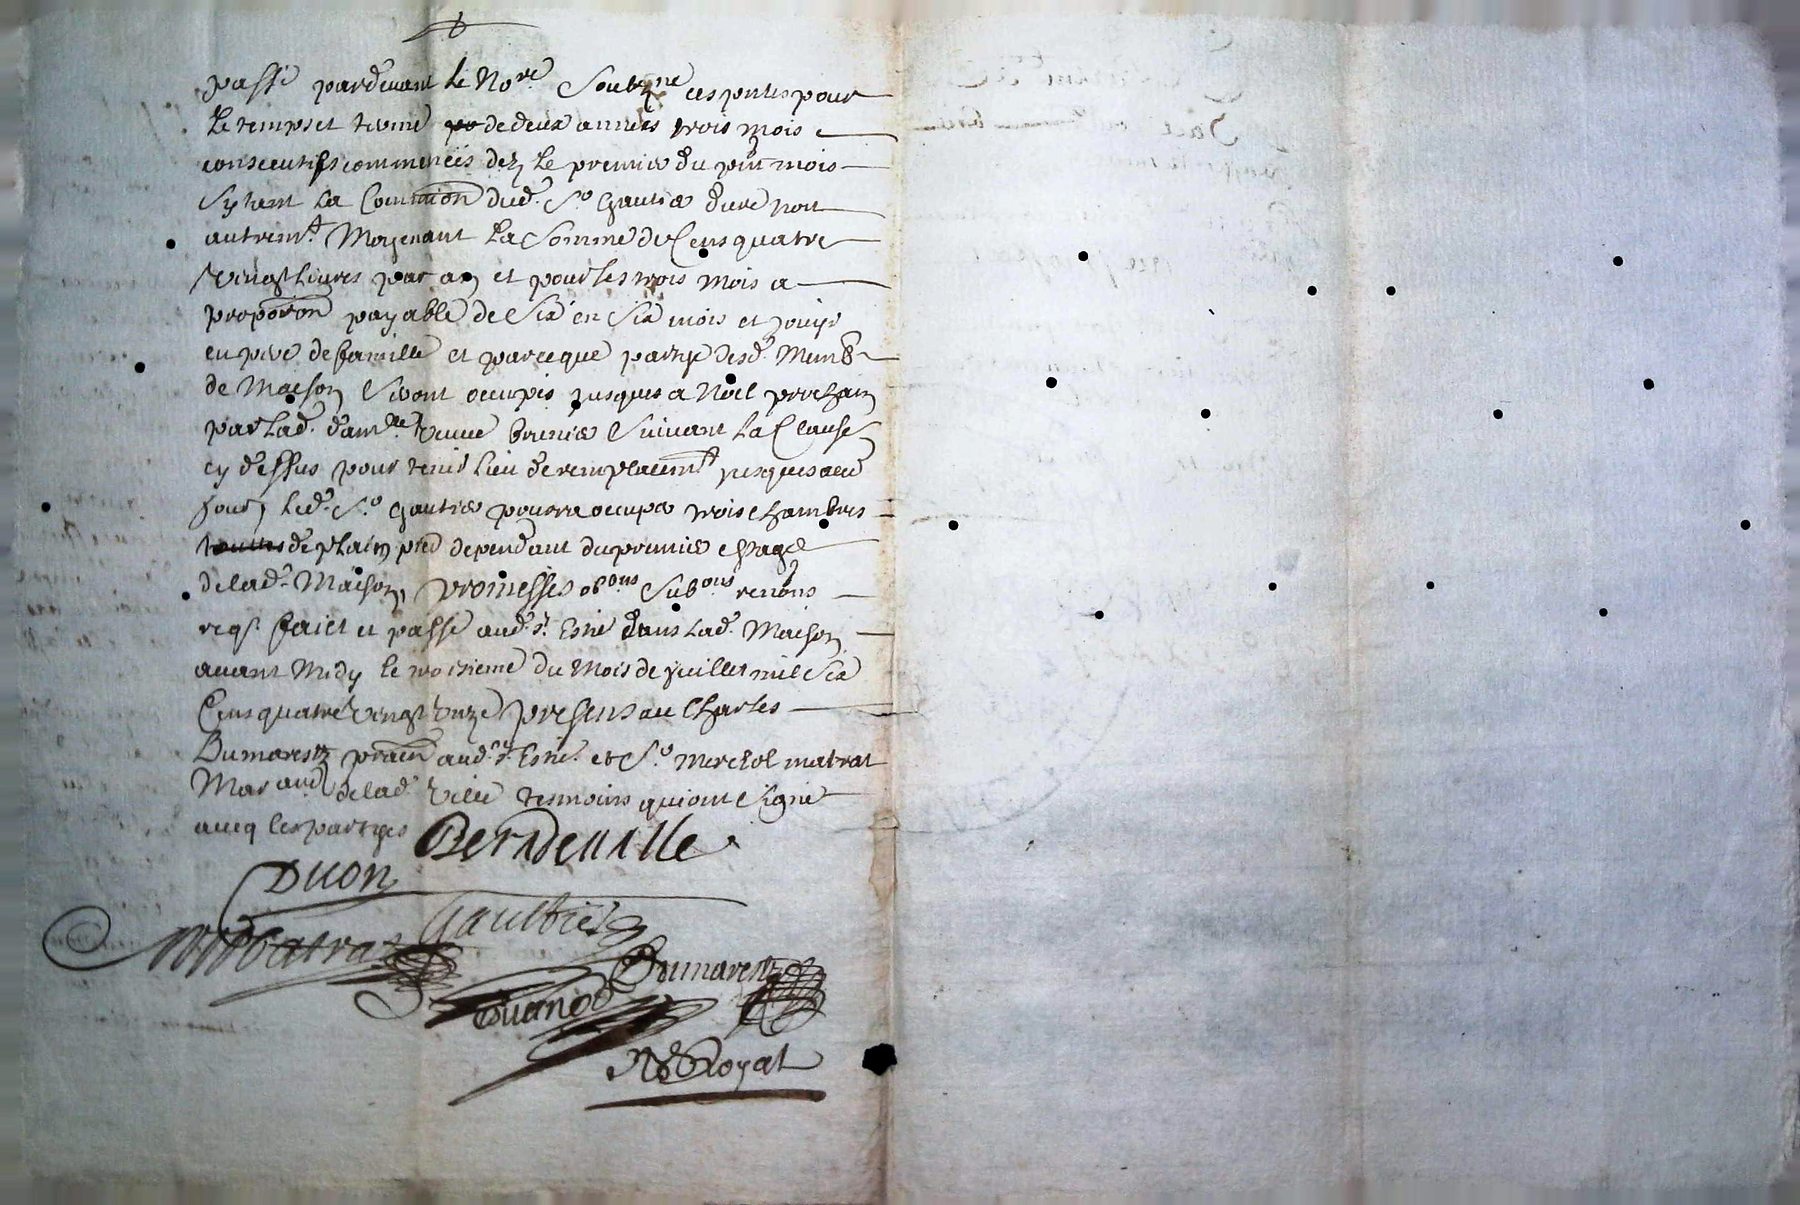 passé pardevant le No.re Soubz.ne ces pntes pour
le temps et terme de deux années trois mois
consecutifs commencés dez le premier du pnt mois
La Com̃ion dud. S.r Gautier dure non
autrem.t Moyenant La Somme de Cens quatre
vingt Livres par an et pour les trois mois a
propor̃on payable de Six en Six mois et jouyr
en pere de famille et parceque partye desd. Memb
de Maison Seront occupés jusques a Noel prochain
par Lad. dam.lle veuve Suivant La Clause
cy dessus pour tenir lieu de remplacem.t jusques aud
jour, Led. S.r Gautier pourra occuper trois chambres
de plain pied dependant du premier estage
de lad. Maison, promesses ob.ons Sub.ons renons
reqs. faict et passé aud. St. Esne dans Lad. Maison
avant Midy le troisieme du Mois de Juillet mil Six
Cens quatre vingt unze presens au Charles
Dumarestz aud. St. Esne. et S.r matrat
Mar.and de lad. ville tesmoins qui ont Signé
avecq les partyes Berndeuille
Duon
Matrat Gaultier
Dumarestz
No. Royal